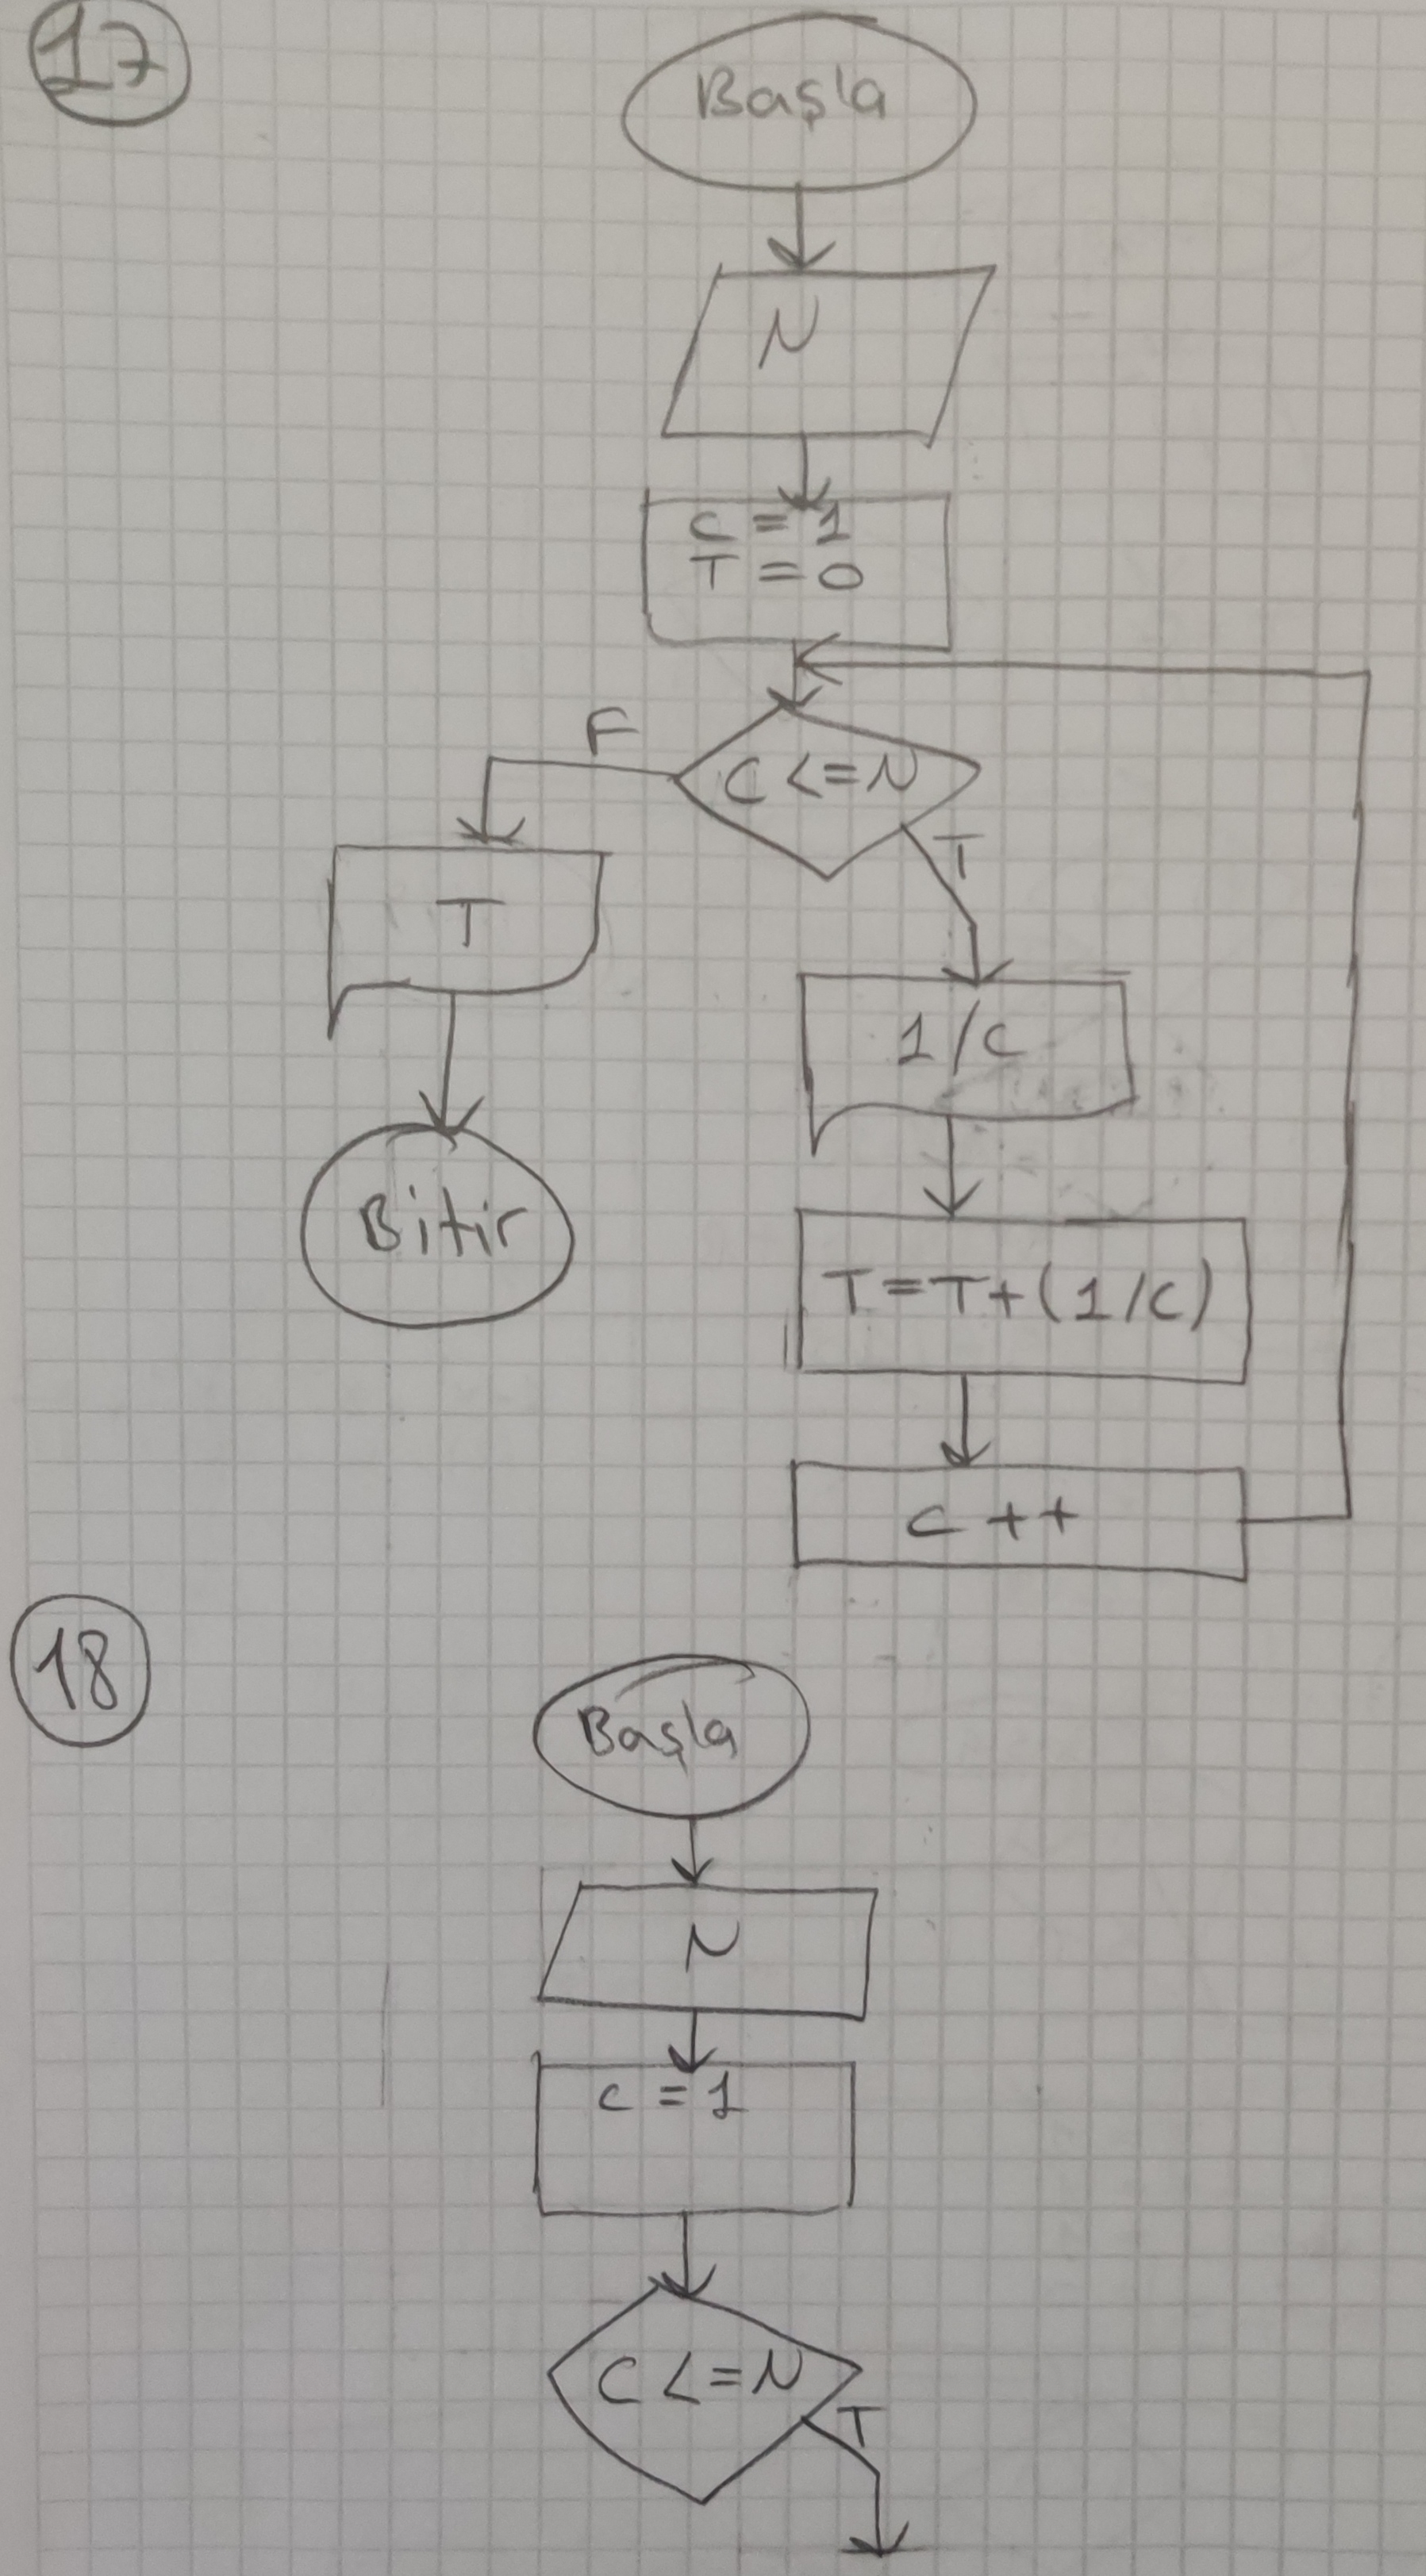 17
Başla
N
C = 1
T = 0
C <= N
F
T
T
1/C
Bitir
T = T + (1/C)
C ++
18
Başla
N
C = 1
C <= N
T